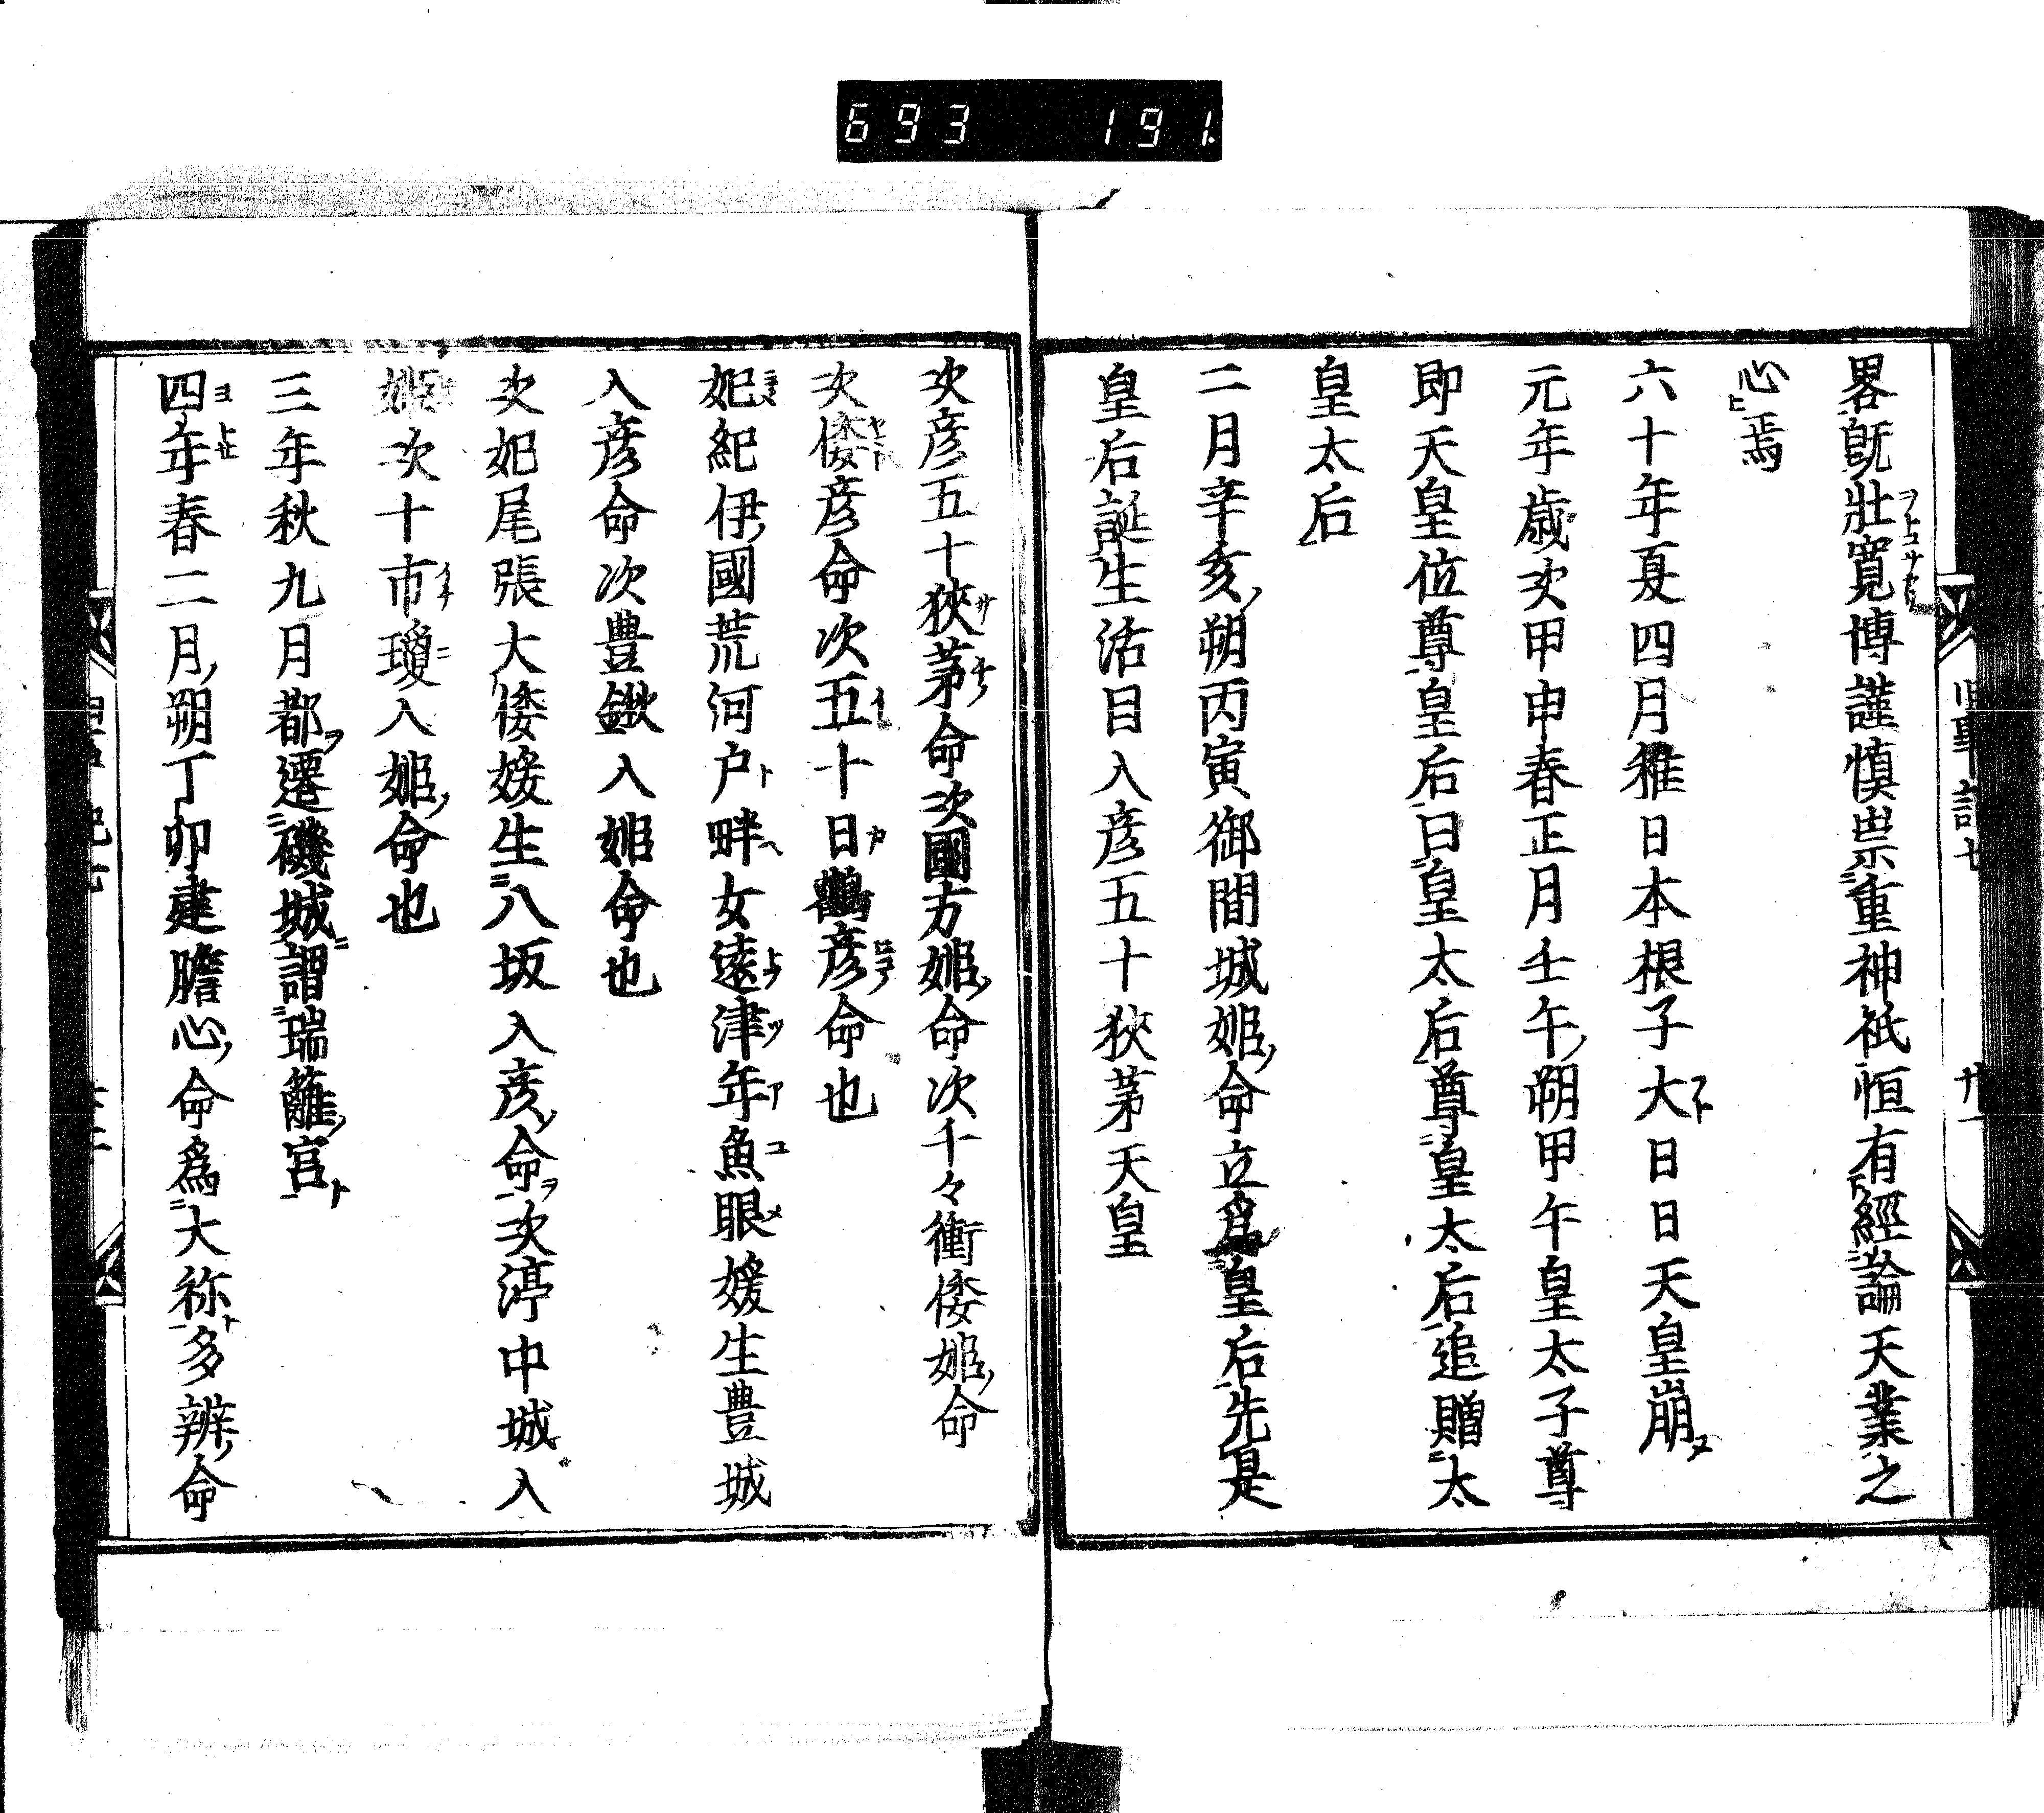 693 191
畧旣壯寬博謹愼崇重神祇恒有經論天業之
心焉
六十年夏四月稚日本根子大日日天皇崩
元年歳次甲申春正月壬午朔甲午皇太子尊
即天皇位尊皇后曰皇太后尊皇太后追贈太
皇太后
二月辛亥朔丙寅御間城姫命立爲皇后先是
皇后誕生活目入彦五十狹茅天皇
次彦五十狹茅命次國方姫命次千々衝倭姫命
次倭彦命次五十日鶴彦命也
妃紀伊國荒河戸畔女遠津年魚眼媛生豊城
入彦命次豊鍬入姫命也
次妃尾張大倭媛生八坂入彦命次渟中城入
姫次十市瓊入姫命也
三年秋九月都遷磯城謂瑞籬宮
四年春二月朔丁卯建膽心命爲大祢多辨命